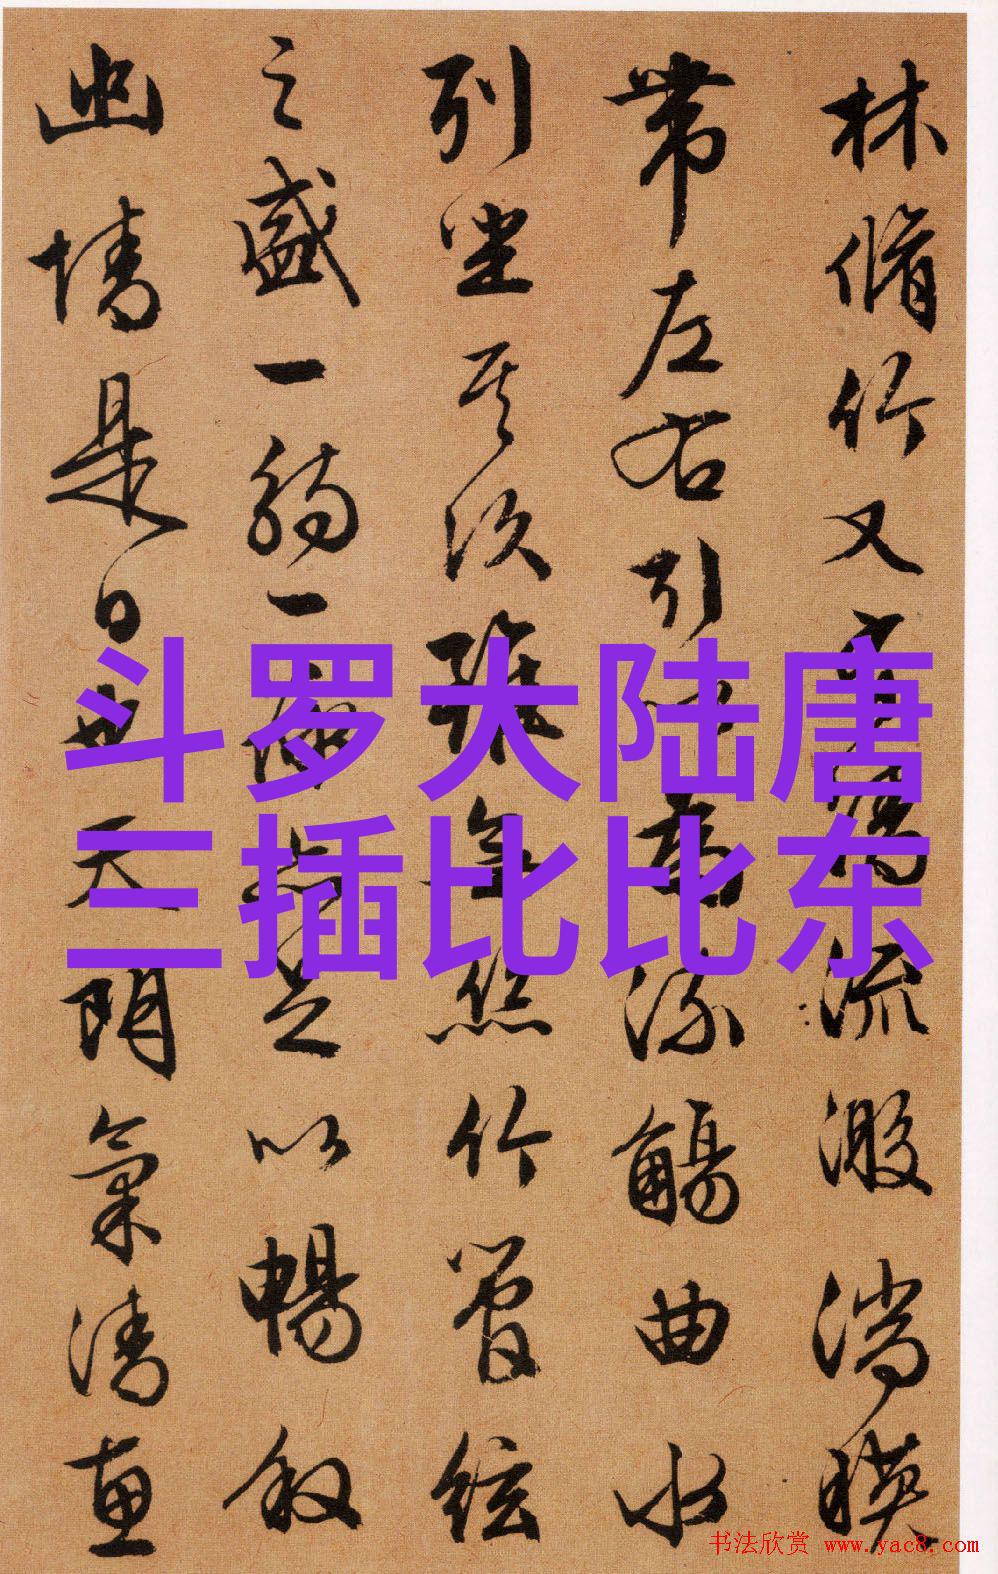 林脩竹又有清流激湍暎
帶左右引以為流觴曲水
列坐其次雖無絲竹管絃
之盛一觴一詠亦足以暢叙
幽情是日也天朗氣清惠
斗罗大陆唐
三插比比东
书法欣赏 www.yac8.com